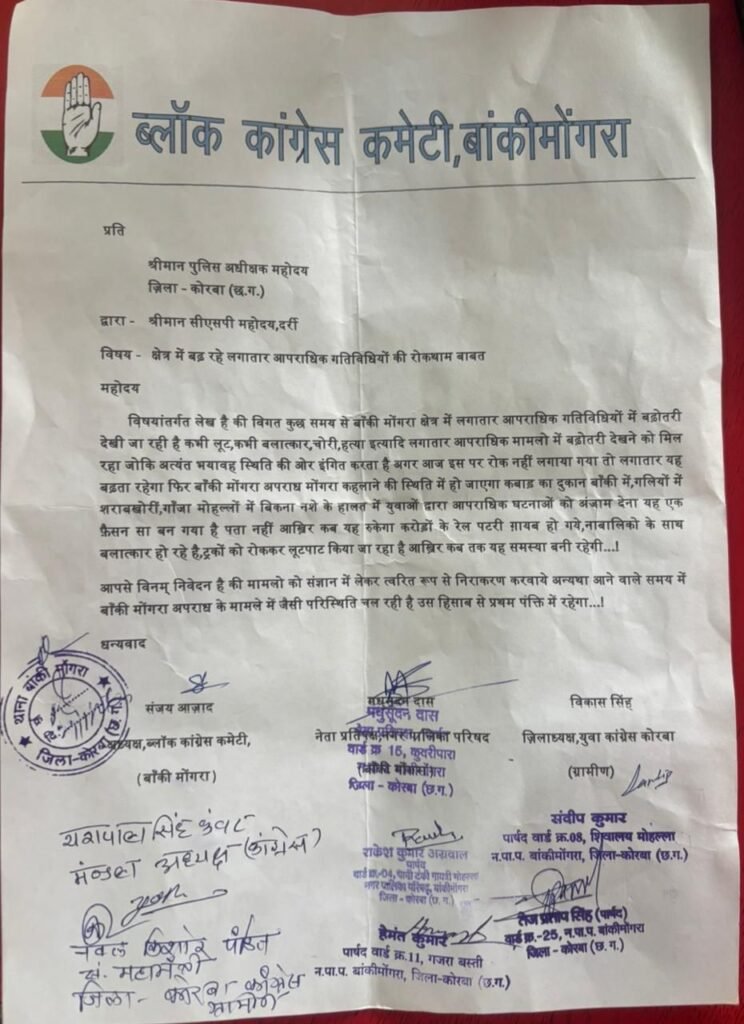 ब्लॉक कांग्रेस कमेटी,बांकीमोंगरा
प्रति
श्रीमान पुलिस अधीक्षक महोदय
ज़िला - कोरबा (छ.ग.)
द्वारा - श्रीमान सीएसपी महोदय,दर्री
विषय - क्षेत्र में बढ़ रहे लगातार आपराधिक गतिविधियों की रोकथाम बाबत
महोदय
विषयांतर्गत लेख है की विगत कुछ समय से बाँकी मोंगरा क्षेत्र में लगातार आपराधिक गतिविधियों में बढ़ोतरी
देखी जा रही है कभी लूट,कभी बलात्कार,चोरी,हत्या इत्यादि लगातार आपराधिक मामलो में बढ़ोतरी देखने को मिल
रहा जोकि अत्यंत भयावह स्थिति की ओर इंगित करता है अगर आज इस पर रोक नहीं लगाया गया तो लगातार यह
बढ़ता रहेगा फिर बाँकी मोंगरा अपराध मोंगरा कहलाने की स्थिति में हो जाएगा कबाड़ का दुकान बाँकी में,गलियों में
शराबखोरी,गाँजा मोहल्लों में बिकना नशे के हालत में युवाओं द्वारा आपराधिक घटनाओं को अंजाम देना यह एक
फ़ैसन सा बन गया है पता नहीं आख़िर कब यह रुकेगा करोड़ों के रेल पटरी ग़ायब हो गये,नाबालिको के साथ
बलात्कार हो रहे है,ट्रकों को रोककर लूटपाट किया जा रहा है आख़िर कब तक यह समस्या बनी रहेगी...!
आपसे विनम्र निवेदन है की मामलो को संज्ञान में लेकर त्वरित रूप से निराकरण करवाये अन्यथा आने वाले समय में
बाँकी मोंगरा अपराध के मामले में जैसी परिस्थिति चल रही है उस हिसाब से प्रथम पंक्ति में रहेगा...!
धन्यवाद
थाना बांकी मोंगरा
जिला-कोरबा (छ.ग.)
संजय आज़ाद
मधुसूदन दास
विकास सिंह
मधुसूदन दास
अध्यक्ष,ब्लॉक कांग्रेस कमेटी,
नेता प्रतिपक्ष,नगर पालिका परिषद
ज़िलाध्यक्ष,युवा कांग्रेस कोरबा
वार्ड क्र 15,
(बाँकी मोंगरा)
(बाँकी मोंगरा)
(ग्रामीण)
जिला - कोरबा (छ.ग.)
यशपाल सिंह कंवर
मंडल अध्यक्ष (कांग्रेस)
संदीप कुमार
पार्षद वार्ड क्र.08, शिवालय मोहल्ला
न.पा.प. बांकीमोंगरा, जिला-कोरबा (छ.ग.)
राकेश कुमार अग्रवाल
पार्षद
वार्ड क्र.-04, पानी टंकी गायत्री मोहल्ला
नगर पालिका परिषद्, बांकीमोंगरा
जिला - कोरबा (छ. ग.)
तेज प्रताप सिंह (पार्षद)
वार्ड क्र.-25, न.पा.प. बांकीमोंगरा
जिला - कोरबा (छ. ग.)
हेमंत कुमार
पार्षद वार्ड क्र.11, गजरा बस्ती
न.पा.प. बांकीमोंगरा, जिला-कोरबा (छ.ग.)
नवल किशोर
महामंत्री
जिला - कोरबा कांग्रेस